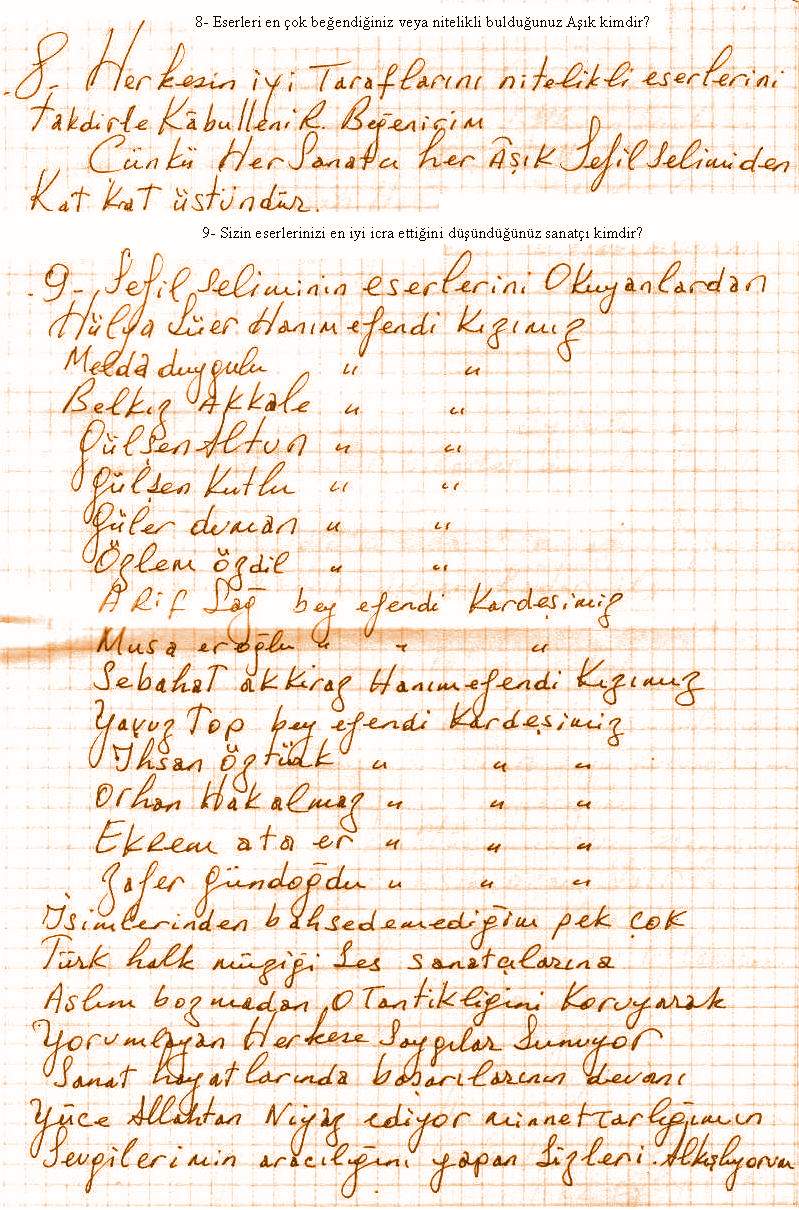 8- Eserleri en çok beğendiğiniz veya nitelikli bulduğunuz Aşık kimdir?
8- Herkesin iyi Taraflarını nitelikli eserlerini
takdirle KâbulleniR. Beğenirim
Çünkü Her Sanatcı her Âşık Sefil Selimiden
Kat Kat üstündür.
9- Sizin eserlerinizi en iyi icra ettiğini düşündüğünüz sanatçı kimdir?
9- Sefil Seliminin eserlerini Okuyanlardan
Hülya Süer Hanımefendi Kızımız
Melda duygulu " "
Belkız AKKale " "
Gülşen Altun " "
Gülşen Kutlu " "
Güler duman " "
Özlem özdil " "
ARif Sağ bey efendi Kardeşimiz
Musa eroğlu " " "
Sebahat akkiraz Hanımefendi Kızımız
Yavuz Top bey efendi Kardeşimiz
İhsan öztürk " " "
Orhan Hakalmaz " " "
Ekrem ata er " " "
Zafer Gündoğdu " " "
İsimlerinden bahsedemediğim pek çok
Türk halk müziği Ses sanatçılarına
Aslını bozmadan OTantikliğini Koruyarak
Yorumlayan Herkese Saygılar Sunuyor
Sanat hayatlarında başarılarının devamı
Yüce Allahtan Niyaz ediyor minnettarlığımın
Sevgilerimin aracılığını yapan Sizleri Alkışlıyorum